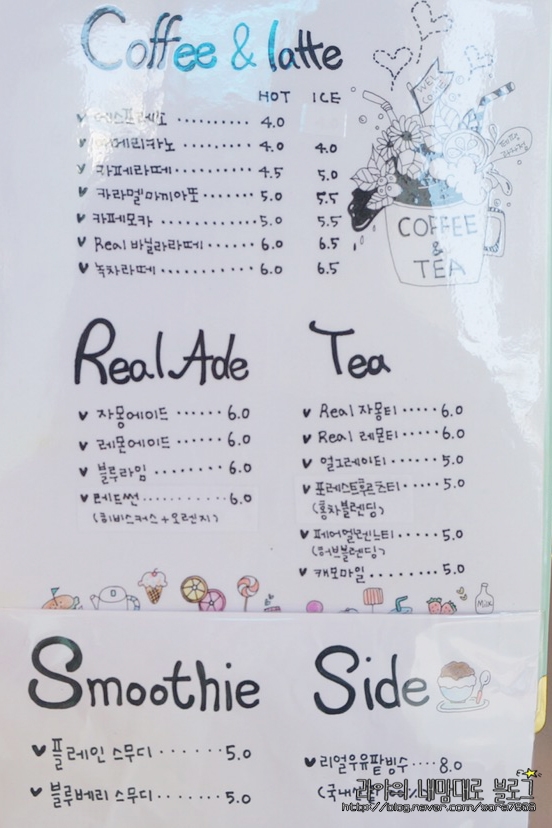 Coffee & latte
HOT ICE
에스프레소 4.0
아메리카노 4.0 4.0
카페라떼 4.5 5.0
카라멜마끼아또 5.0 5.5
카페모카 5.0 5.5
Real 바닐라라떼 6.0 6.5
녹차라떼 6.0 6.5
WEL COME
COFFEE
&
TEA
Real Ade
자몽에이드 6.0
레몬에이드 6.0
블루라임 6.0
레드썬 6.0
(히비스커스+오렌지)
Tea
Real 자몽티 6.0
Real 레몬티 6.0
얼그레이티 5.0
포레스트후르츠티 5.0
(홍차블렌딩)
페어멜렌느티 5.0
(허브블렌딩)
캐모마일 5.0
Milk
Smoothie
플레인 스무디 5.0
블루베리 스무디 5.0
Side
리얼우유팥빙수 8.0
(국내
http://blog.naver.com/